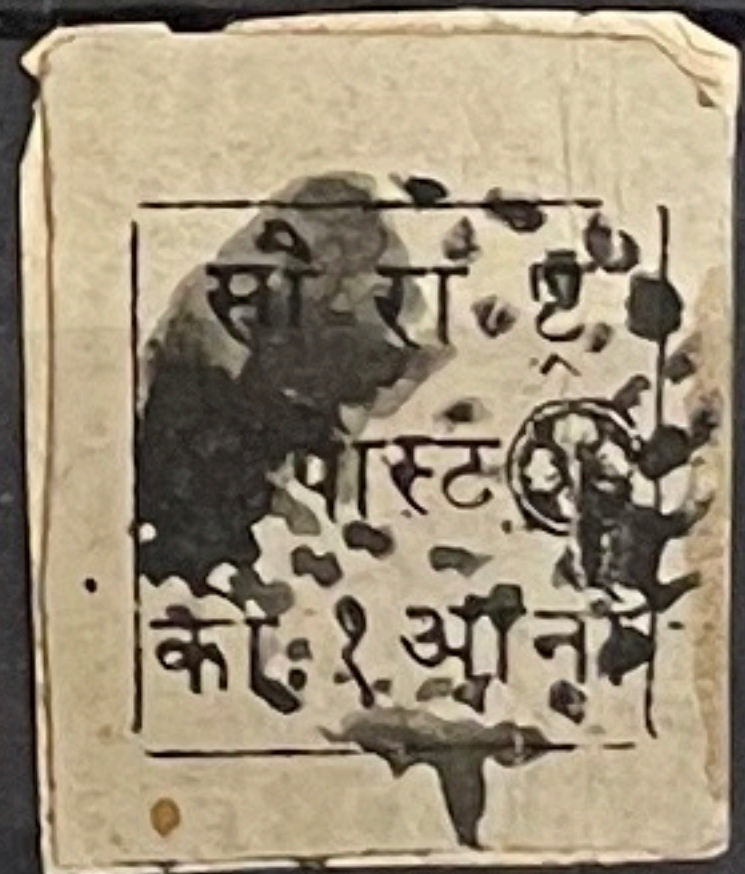 सौ रा ष्ट्र
पोस्ट
कीं: १ आंनो